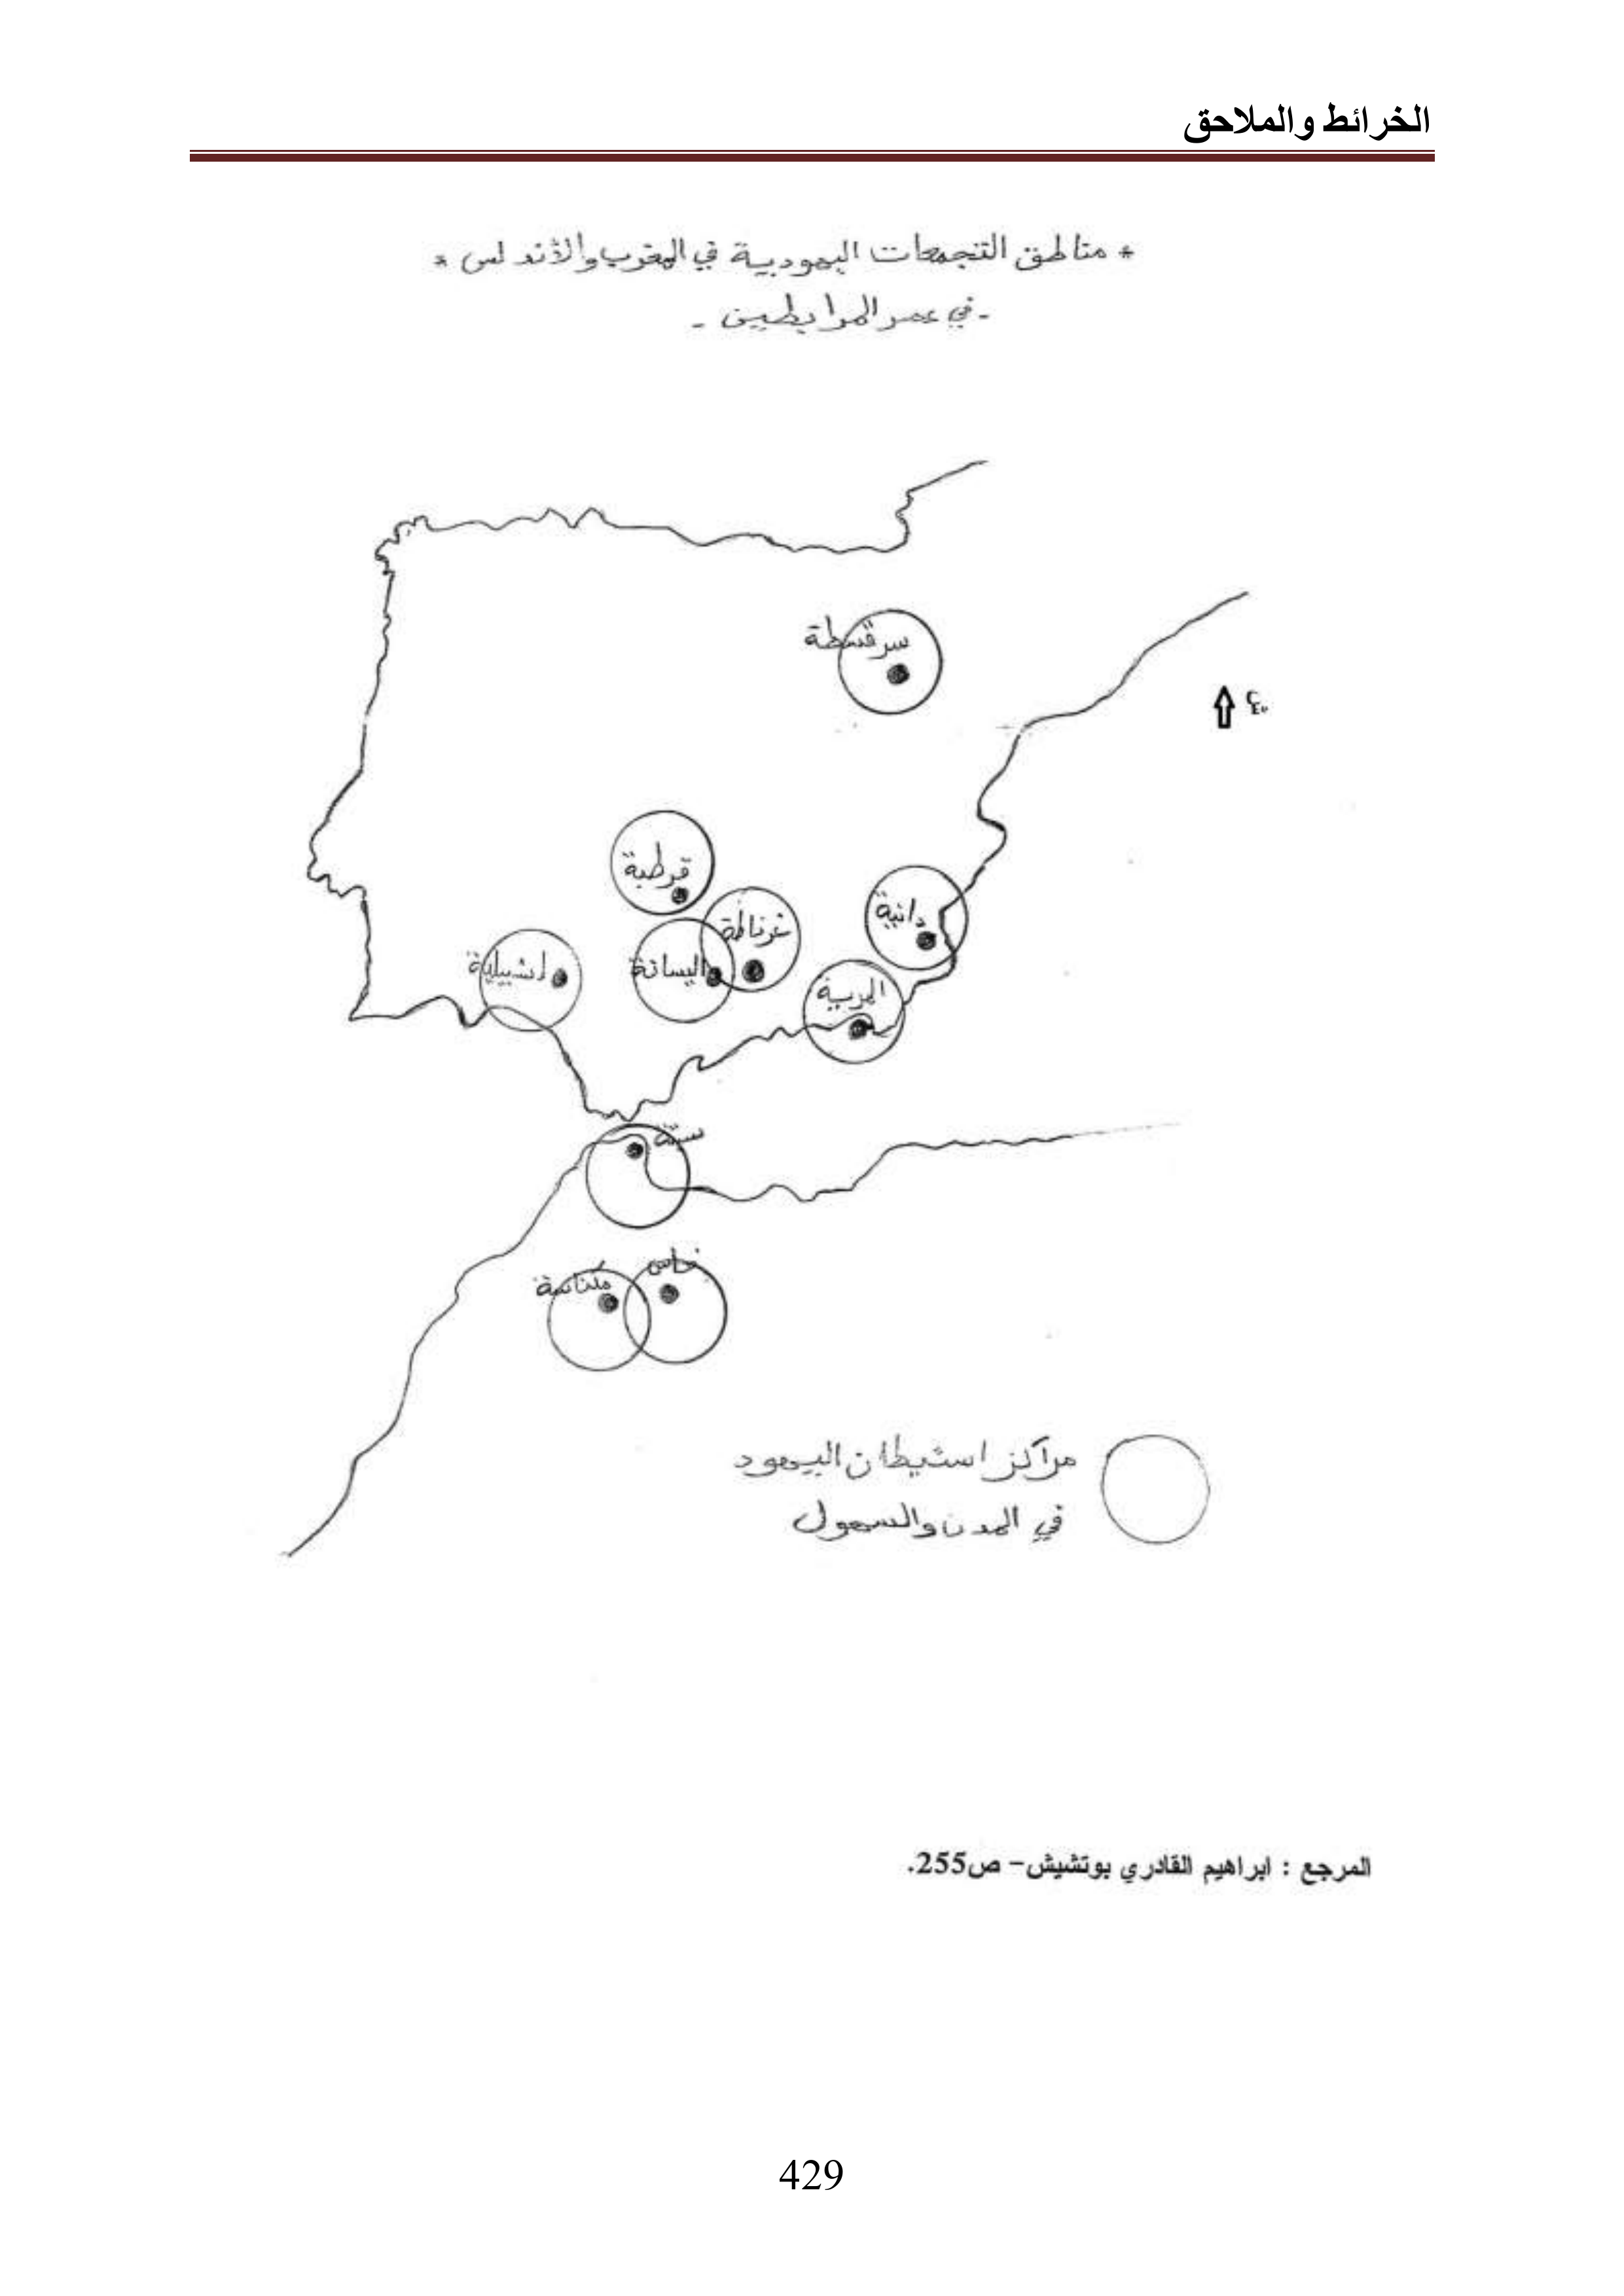 الخرائط والملاحق
* مناطق التجمعات اليهودية في المغرب والأندلس *
- في عصر المرابطين -
سرقسطة
قرطبة
غرناطة
دانية
اشبيلية
اليسانة
المرية
سبتة
فاس
مكناسة
مراكز استيطان اليهود
في المدن والسهول
المرجع : ابراهيم القادري بوتشيش– ص255.
429